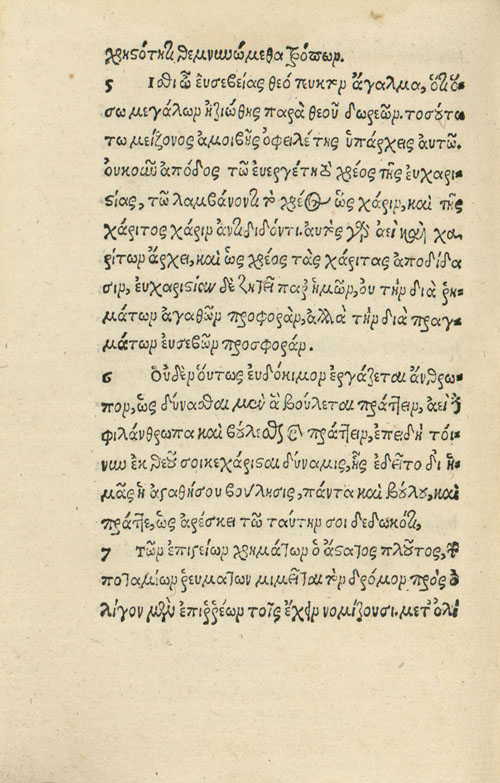 χρηστότητι σεμνυνώμεθα τρόπων.
5 Ἴσθι ὦ εὐσεβείας θεότευκτον ἄγαλμα, ὅτι ὅ-
σω μεγάλων ἠξιώθης παρὰ θεοῦ δωρεῶν. τοσούτω
τω μείζονος ἀμοιβῆς ὀφειλέτης ὑπάρχεις αὐτῶ.
Οὐκοῦν ἀπόδος τῶ εὐεργέτη τὸ χρέος τῆς εὐχαρι-
στίας, τῶ λαμβάνοντι τὸ χρέος ὡς χάριν, καὶ τῆς
χάριτος χάριν ἀντιδιδόντι. αὐτὸς γὰρ ἀεὶ καὶ χα
ρίτων ἄρχει, καὶ ὡς χρέος τὰς χάριτας ἀποδίδω
σιν, εὐχαριστίαν δὲ ζητεῖ παρ' ἡμῶν, οὐ τὴν διὰ ῥη-
μάτων ἀγαθῶν προφορὰν, ἀλλὰ τὴν διὰ πραγ-
μάτων εὐσεβῶν προσφοράν.
6 Οὐδὲν οὕτως εὐδόκιμον ἐργάζεται ἄνθρω-
πον, ὡς δύνασθαι μὲν ἃ βούλεται πράττειν, ἀεὶ δὲ
φιλάνθρωπα καὶ βούλεσθαι καὶ πράττειν, ἐπειδὴ τοί-
νυν ἐκ θεοῦ σοι κεχάρισται δύναμις, ἧς ἐδεῖτο δι' ἡ-
μᾶς ἡ ἀγαθή σου βούλησις, πάντα καὶ βούλου, καὶ
πράττε, ὡς ἀρέσκει τῶ ταύτην σοι δεδωκότι,
7 Τῶν ἐπιγείων χρημάτων ὁ ἄστατος πλοῦτος, τῶν
ποταμίων ῥευμάτων μιμεῖται τὸν δρόμον πρὸς ὀ
λίγον μὲν ἐπιῤῥέων τοῖς ἔχειν νομίζουσι. μετ' ὀλί